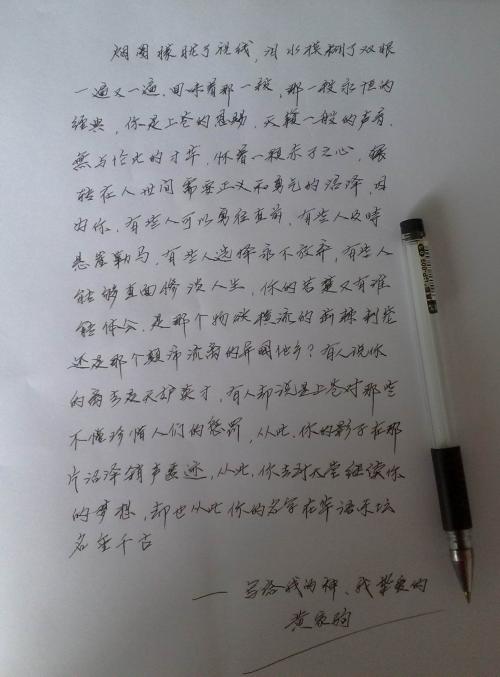 烟圈朦胧了视线，泪水模糊了双眼
一遍又一遍，回味着那一段，那一段永恒的
经典，你是上苍的恩赐，天籁一般的声音，
无与伦比的才华，怀着一颗赤子之心，辗
转在人世间需要正义和勇气的沼泽，因
为你，有些人可以勇往直前，有些人及時
悬崖勒马，有些人选择永不放弃，有些人
能够直面惨淡人生，你的苦楚又有谁
能体会，是那个物欲横流的荆棘利巷
还是那个颠沛流离的异国他乡？有人说你
的离去是天妒英才，有人却说是上苍对那些
不懂珍惜人们的惩罚，从此，你的影子在那
片沼泽销声匿迹，从此，你去到天堂继续你
的梦想，却也从此你的名字在华语乐坛
名垂千古
—— 写给我的神、我挚爱的
黄家驹